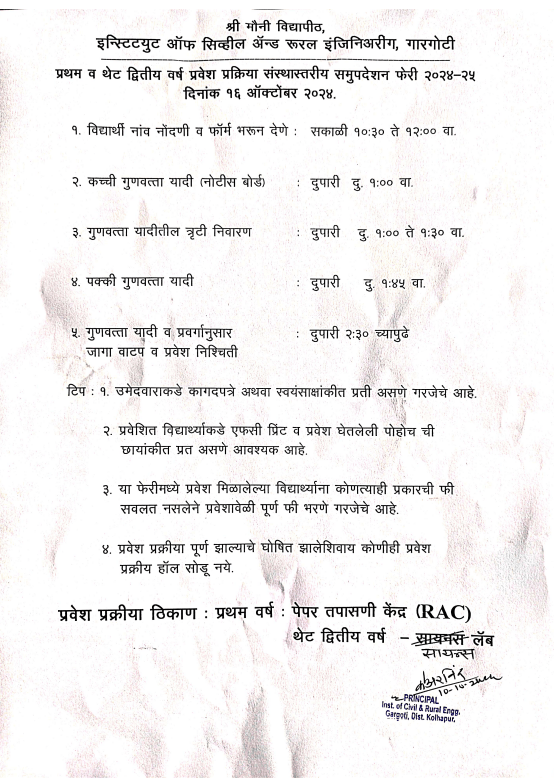 श्री मौनी विद्यापीठ,
इन्स्टिटयुट ऑफ सिव्हील ॲन्ड रूरल इंजिनिअरीग, गारगोटी
प्रथम व थेट द्वितीय वर्ष प्रवेश प्रक्रिया संस्थास्तरीय समुपदेशन फेरी २०२४-२५
दिनांक १६ ऑक्टोंबर २०२४.
१. विद्यार्थी नांव नोंदणी व फॉर्म भरून देणे : सकाळी १०:३० ते १२:०० वा.
२. कच्ची गुणवत्ता यादी (नोटीस बोर्ड) : दुपारी दु. १:०० वा.
३. गुणवत्ता यादीतील त्रृटी निवारण : दुपारी दु. १:०० ते १:३० वा.
४. पक्की गुणवत्ता यादी : दुपारी दु. १:४५ वा.
५. गुणवत्ता यादी व प्रवर्गानुसार : दुपारी २:३० च्यापुढे
जागा वाटप व प्रवेश निश्चिती
टिप : १. उमेदवाराकडे कागदपत्रे अथवा स्वयंसाक्षांकीत प्रती असणे गरजेचे आहे.
२. प्रवेशित विद्यार्थ्याकडे एफसी प्रिंट व प्रवेश घेतलेली पोहोच ची
छायांकीत प्रत असणे आवश्यक आहे.
३. या फेरीमध्ये प्रवेश मिळालेल्या विद्यार्थ्याना कोणत्याही प्रकारची फी
सवलत नसलेने प्रवेशावेळी पूर्ण फी भरणे गरजेचे आहे.
४. प्रवेश प्रक्रीया पूर्ण झाल्याचे घोषित झालेशिवाय कोणीही प्रवेश
प्रक्रीय हॉल सोडू नये.
प्रवेश प्रक्रीया ठिकाण : प्रथम वर्ष : पेपर तपासणी केंद्र (RAC)
थेट द्वितीय वर्ष - सायमस लॅब
सायन्स
PRINCIPAL
Inst. of Civil & Rural Engg.
Gargoti, Dist. Kolhapur.